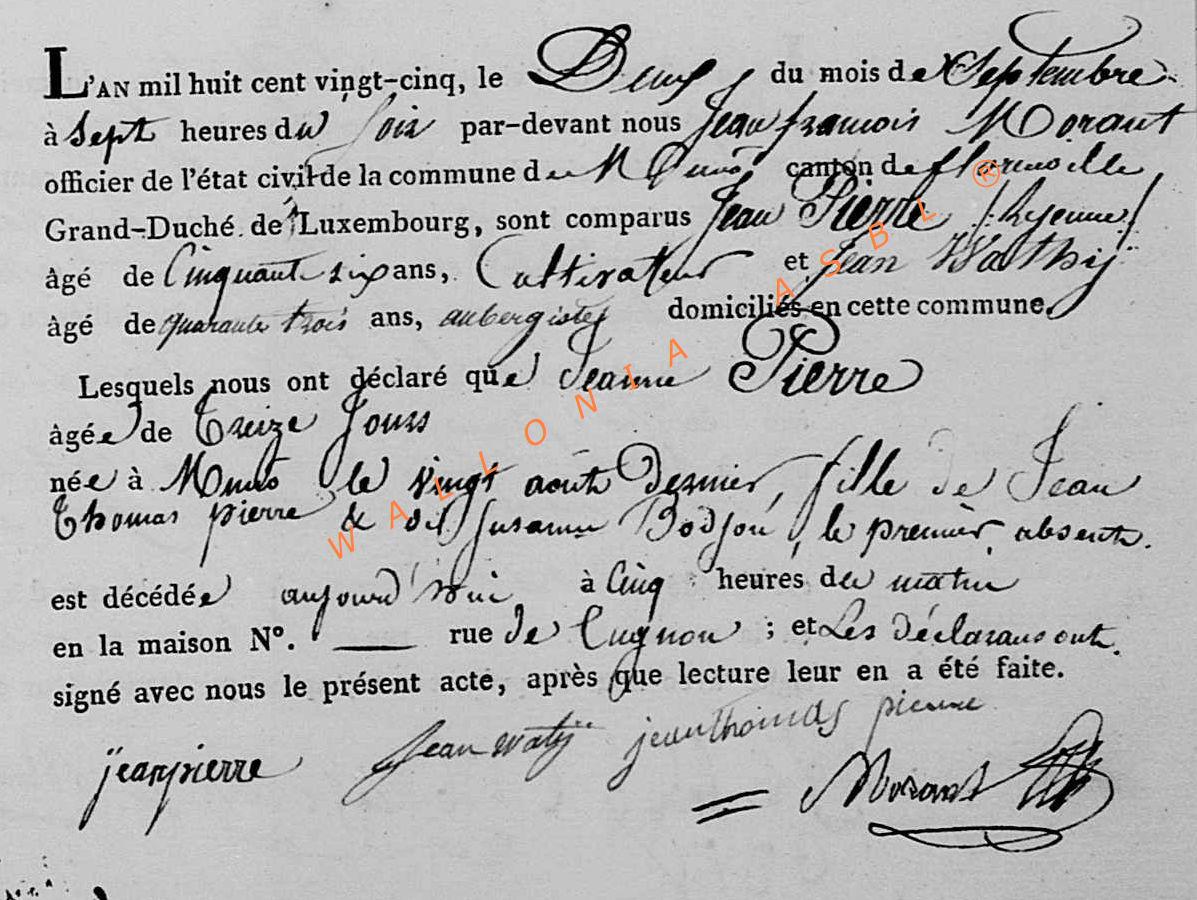 L'AN mil huit cent vingt-cinq, le Deux du mois de Septembre
à Sept heures du Soir par-devant nous Jean françois Morant
officier de l'état civil de la commune de Muno canton de florenville
Grand-Duché de Luxembourg, sont comparus Jean Pierre
âgé de Cinquante six ans, Cultivateur et Jean Wathij
âgé de quarante trois ans, aubergiste domiciliés en cette commune.
Lesquels nous ont déclaré que Jeanne Pierre
âgée de Treize Jours
née à Muno le vingt août Dernier, fille de Jean
Thomas pierre & de Susanne Bodson, le premier absent.
est décédée aujourd'hui à Cinq heures du matin
en la maison N°. rue de Cugnon ; et Les Déclarans ont
signé avec nous le présent acte, après que lecture leur en a été faite.
jean pierre Jean watij jean thomas pierre
Morant
WALLONIA ASBL ®